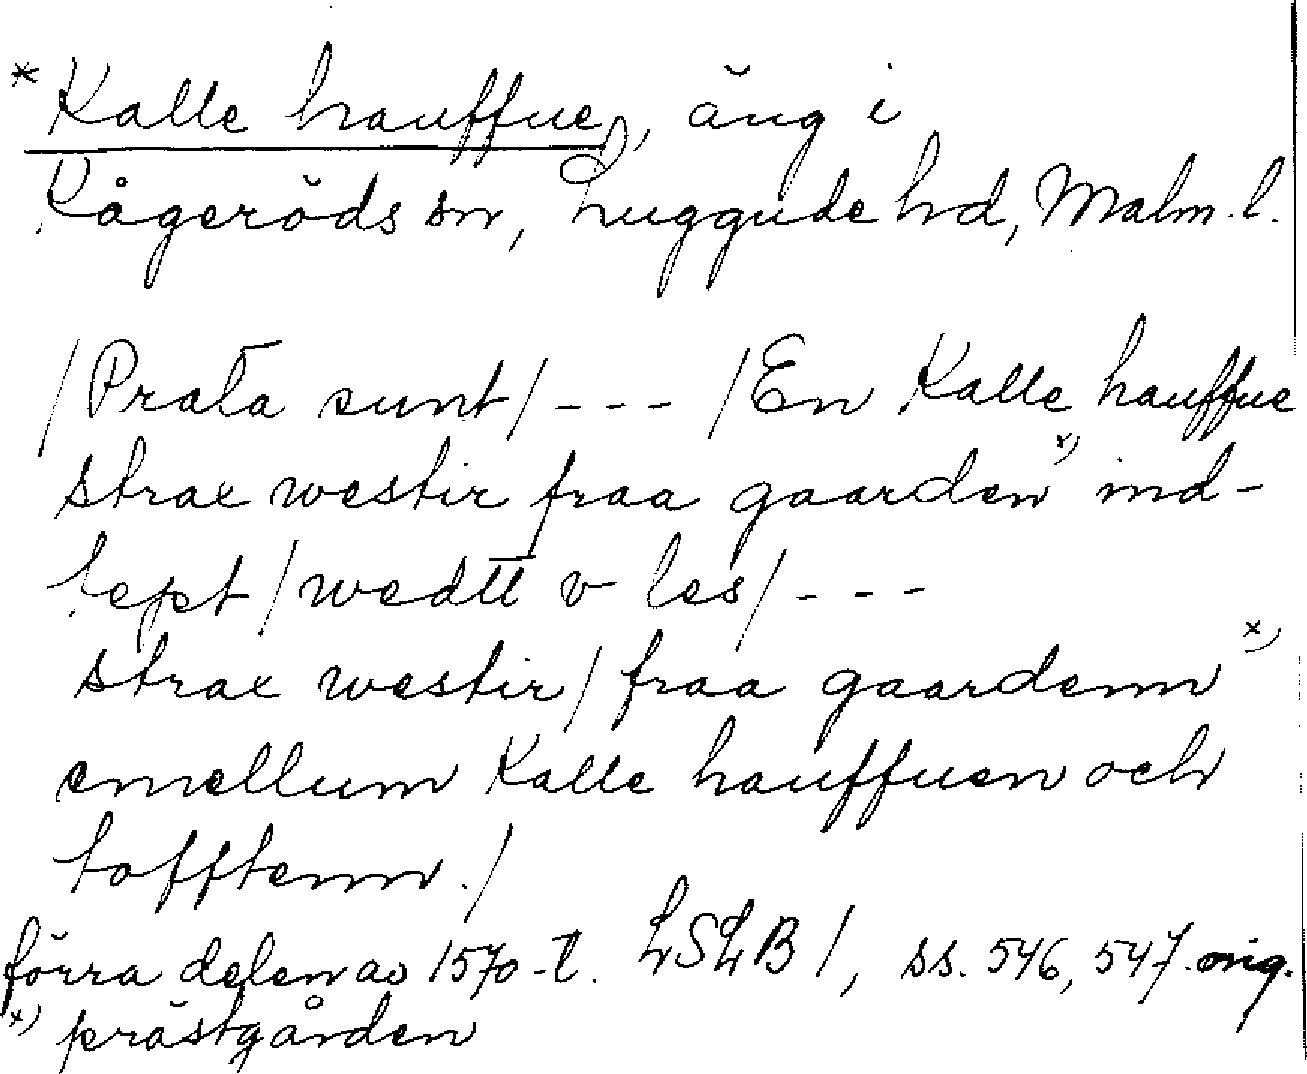 * Kalle hauffue, äng i
Kågeröds sn, Luggude hd, Malm. l.
/Prata sunt/ - - - /En Kalle hauffue
strax westir fraa gaarden x) ind-
lept /wedtt v les/ - - -
strax westir/ fraa gaardenn x)
emellum Kalle hauffuen och
tofftenn./
förra delen av 1570-t. LSLB 1, ss. 546, 547. orig.
x) prästgården